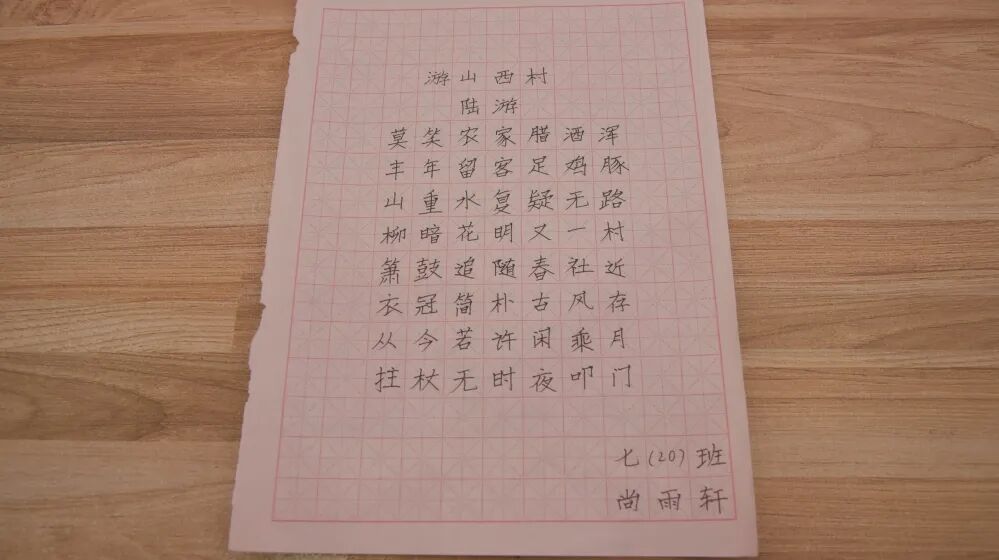 游山西村
陆游
莫笑农家腊酒浑
丰年留客足鸡豚
山重水复疑无路
柳暗花明又一村
箫鼓追随春社近
衣冠简朴古风存
从今若许闲乘月
拄杖无时夜叩门
七(20)班
尚雨轩